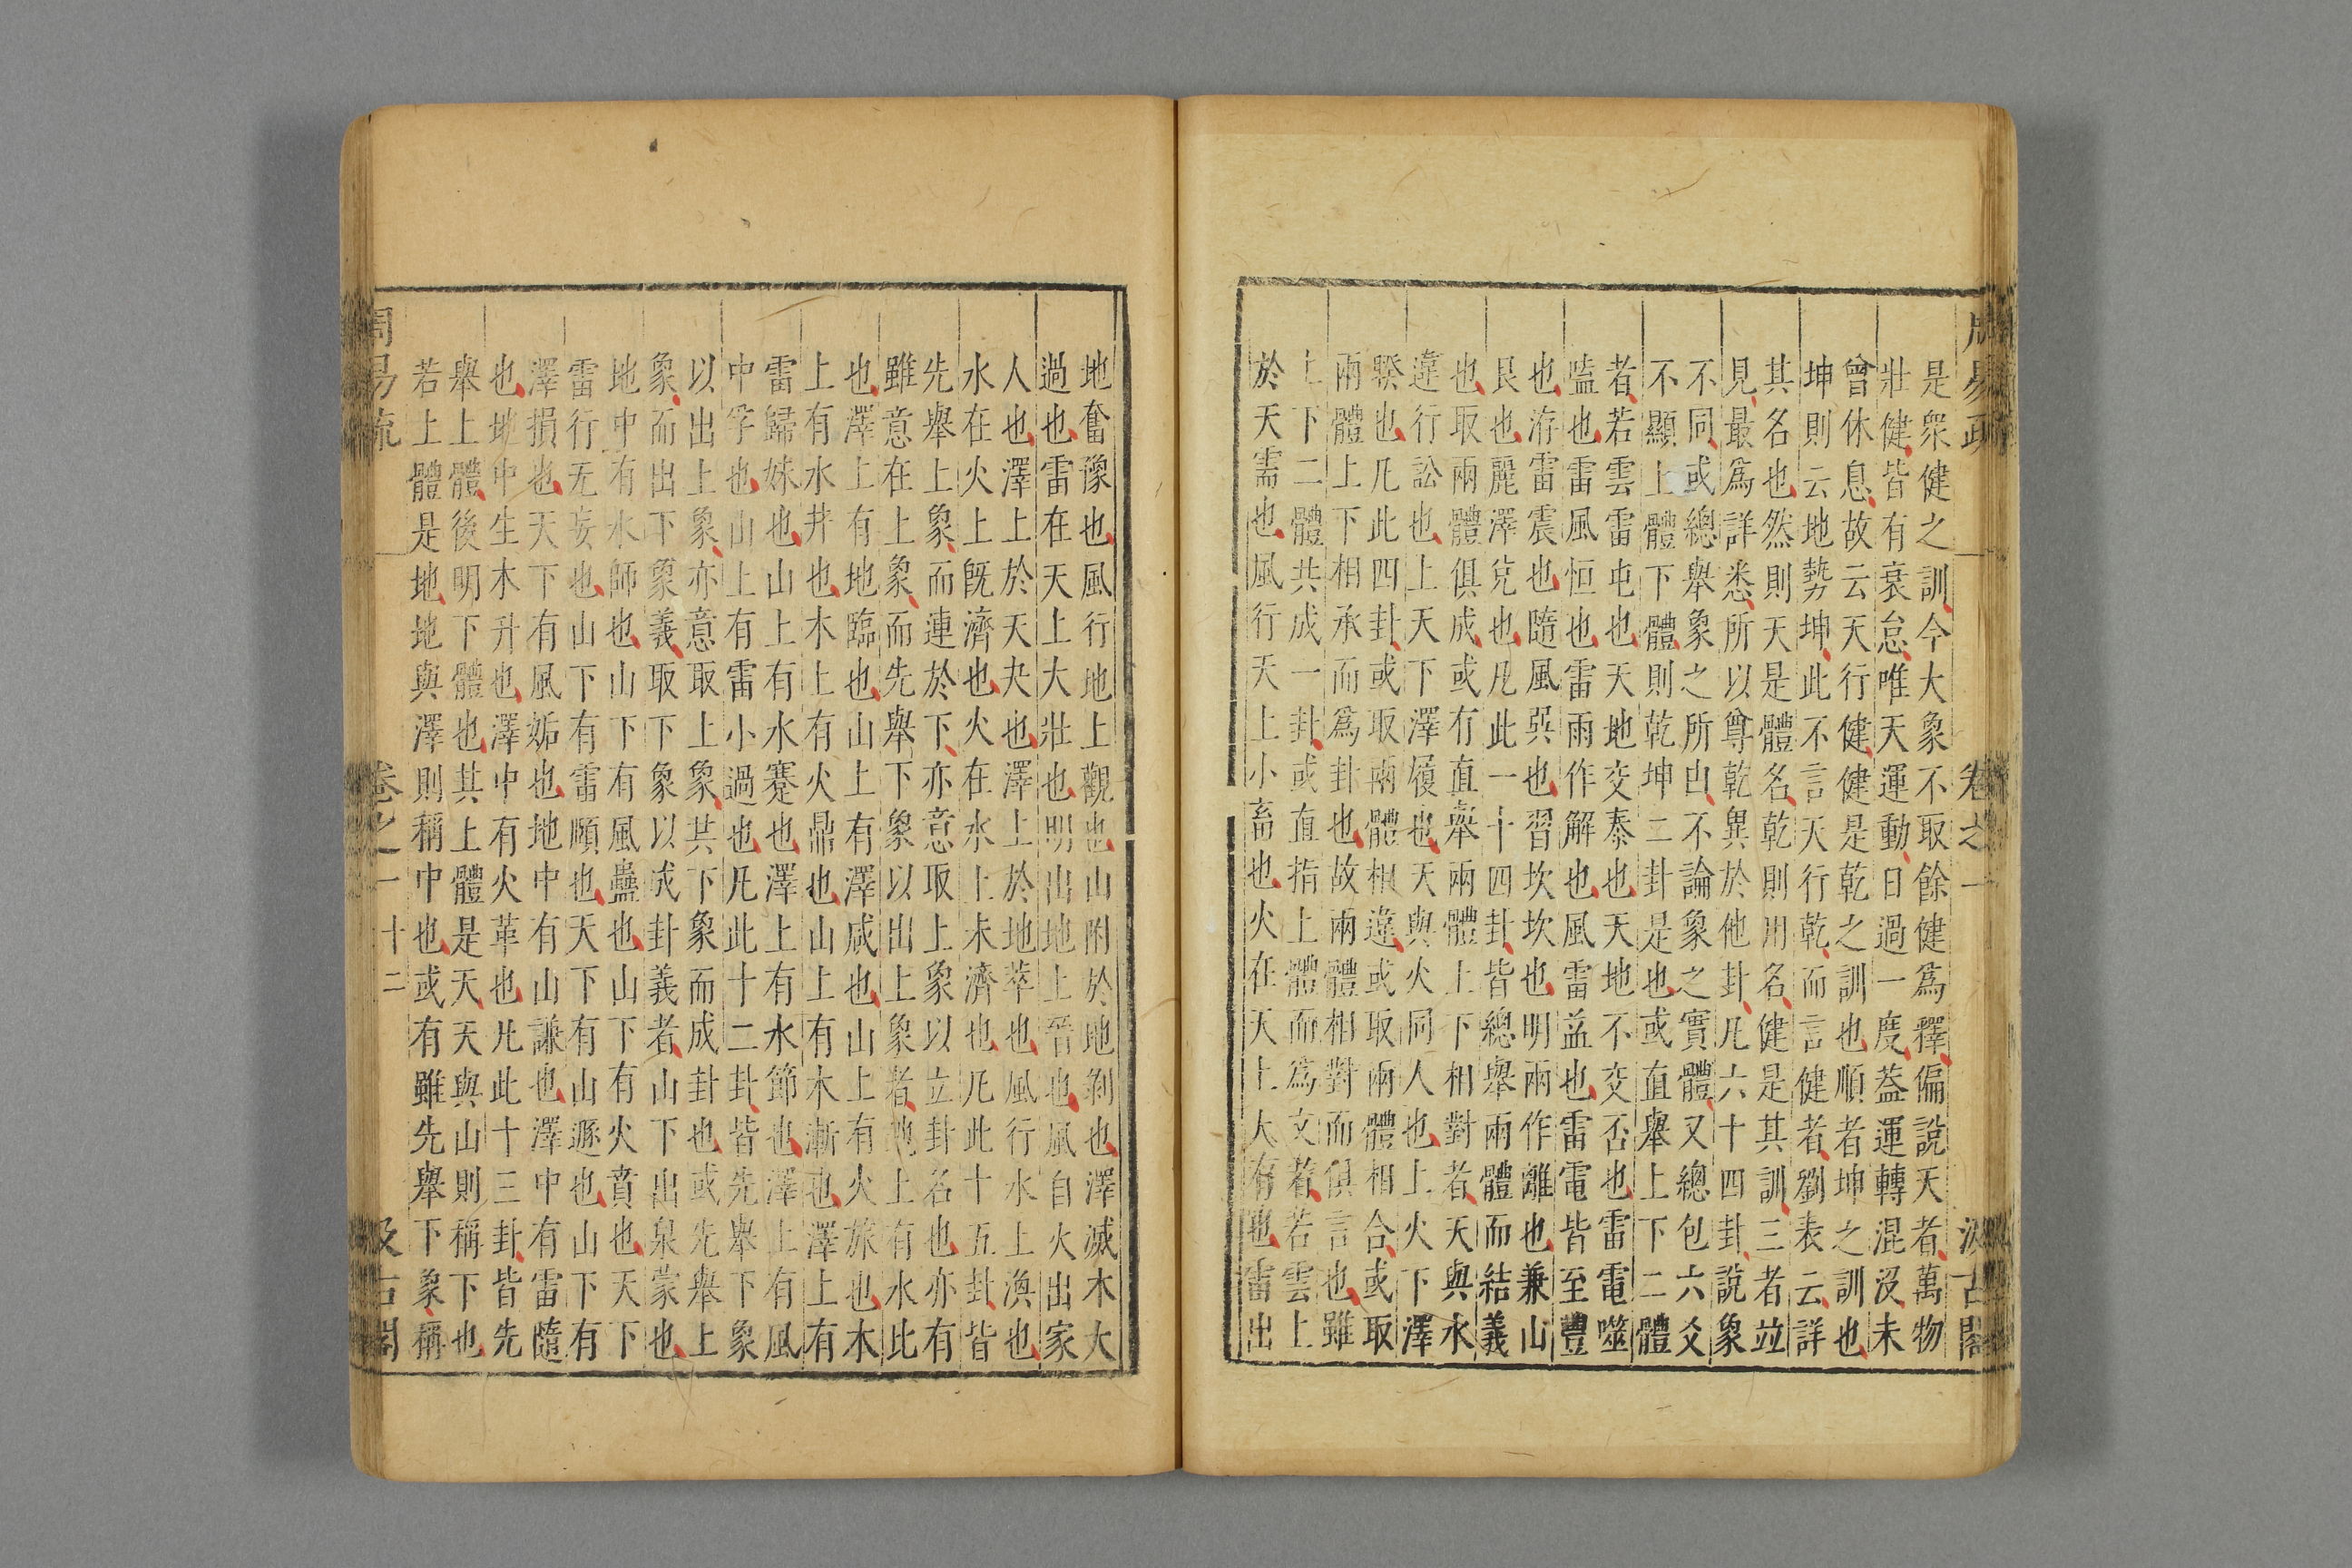 周易疏　卷之一　汲古閣
是衆健之訓今大象不取餘健爲釋偏說天者萬物
壯健皆有衰怠唯天運動日過一度葢運轉混沒未
曾休息故云天行健健是乾之訓也順者坤之訓也
坤則云地勢坤此不言天行乾而言健者劉表云詳
其名也然則天是體名乾則用名健是其訓三者竝
見最爲詳悉所以尊乾異於他卦凡六十四卦說象
不同或總舉象之所由不論象之實體又總包六爻
不顯上體下體則乾坤二卦是也或直舉上下二體
者若雲雷屯也天地交泰也天地不交否也雷電噬
嗑也雷風恒也雷雨作解也風雷益也雷電皆至豐
也洊雷震也隨風巽也習坎坎也明兩作離也兼山
艮也麗澤兌也凡此一十四卦皆總舉兩體而結義
也取兩體俱成或有直舉兩體上下相對者天與水
違行訟也上天下澤履也天與火同人也上火下澤
睽也凡此四卦或取兩體相違或取兩體相合或取
兩體上下相承而爲卦也故兩體相對而俱言也雖
上下二體共成一卦或直指上體而爲文者若雲上
於天需也風行天上小畜也火在天上大有也雷出
地奮豫也風行地上觀也山附於地剝也澤滅木大
過也雷在天上大壯也明出地上晉也風自火出家
人也澤上於天夬也澤上於地萃也風行水上渙也
水在火上旣濟也火在水上未濟也凡此十五卦皆
先舉上象而連於下亦意取上象以立卦名也亦有
雖意在上象而先舉下象以出上象者地上有水比
也澤上有地臨也山上有澤咸也山上有火旅也木
上有水井也木上有火鼎也山上有木漸也澤上有
雷歸妹也山上有水蹇也澤上有水節也澤上有風
中孚也山上有雷小過也凡此十二卦皆先舉下象
以出上象亦意取上象共下象而成卦也或先舉上
象而出下象義取下象以成卦義者山下出泉蒙也
地中有水師也山下有風蠱也山下有火賁也天下
雷行无妄也山下有雷頤也天下有山遯也山下有
澤損也天下有風姤也地中有山謙也澤中有雷隨
也地中生木升也澤中有火革也凡此十三卦皆先
舉上體後明下體也其上體是天天與山則稱下也
若上體是地地與澤則稱中也或有雖先舉下象稱
周易疏　卷之一　十二　汲古閣